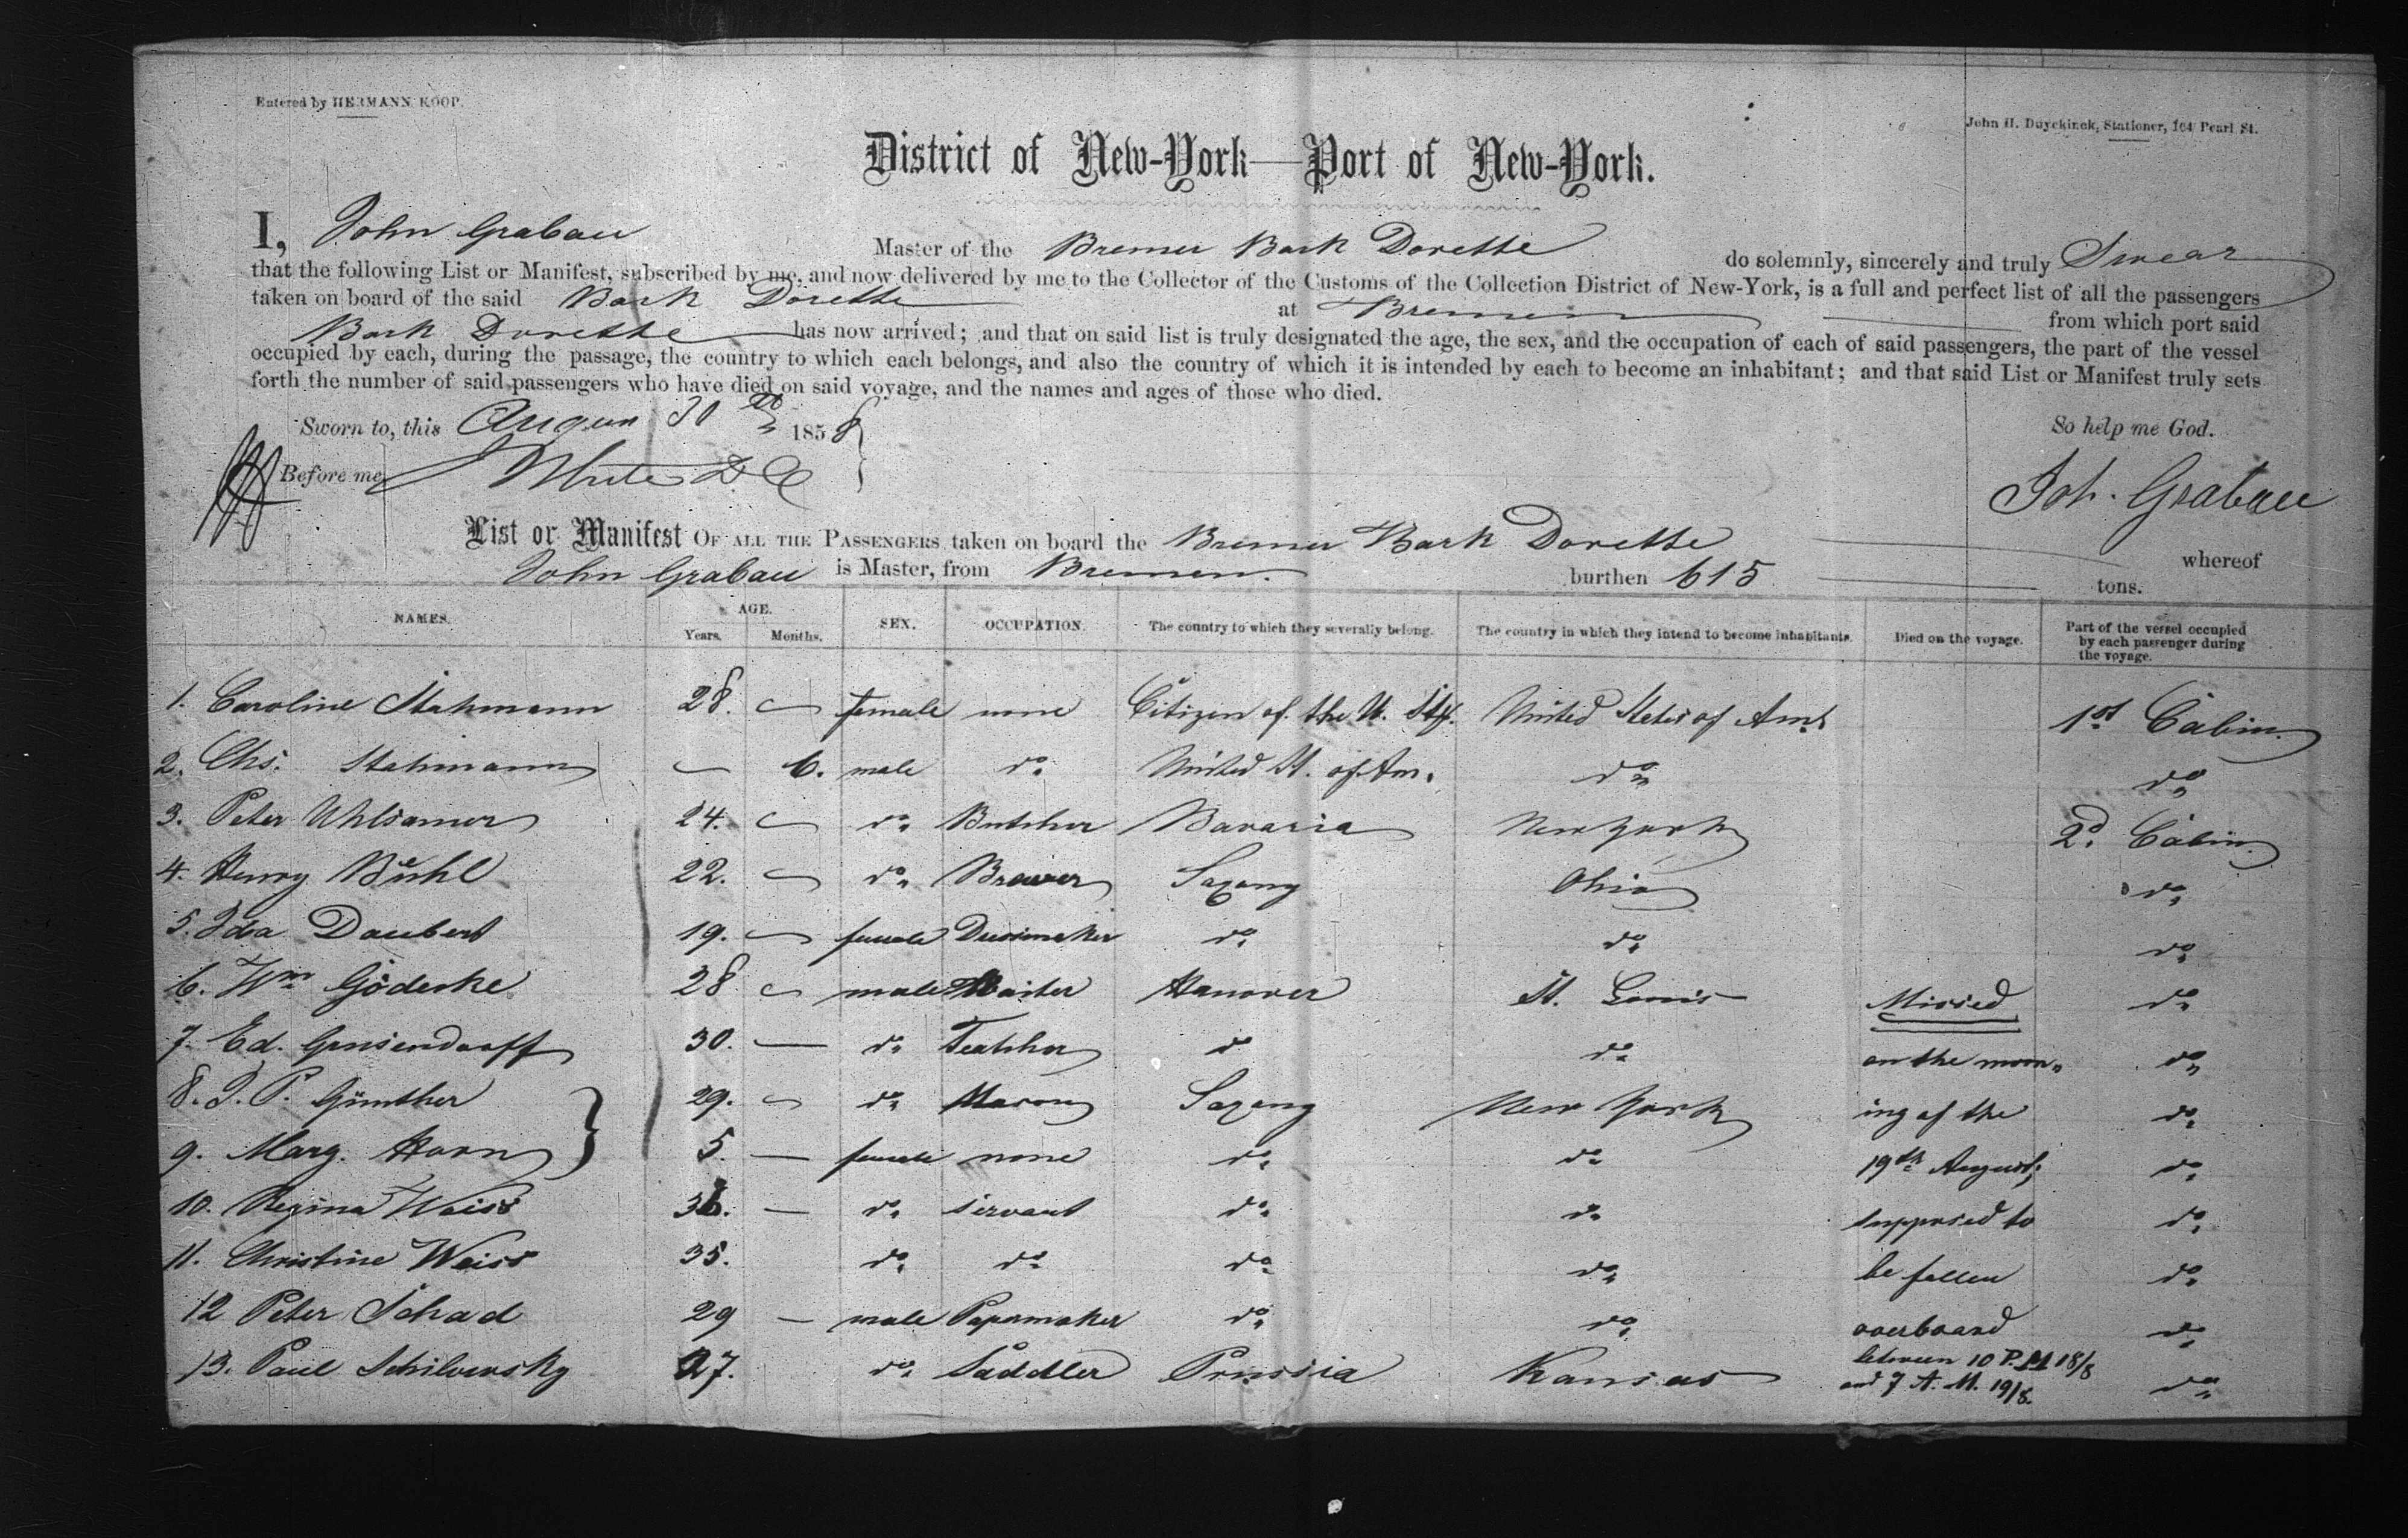 Entered by HERMANN KOOP.
John H. Duyckinck, Stationer, 164 Pearl St.
District of New-York—Port of New-York.
I, John Grabau Master of the Bremer Bark Dorette do solemnly, sincerely and truly Swear
that the following List or Manifest, subscribed by me, and now delivered by me to the Collector of the Customs of the Collection District of New-York, is a full and perfect list of all the passengers
taken on board of the said Bark Dorette at Bremen from which port said
Bark Dorette has now arrived; and that on said list is truly designated the age, the sex, and the occupation of each of said passengers, the part of the vessel
occupied by each, during the passage, the country to which each belongs, and also the country of which it is intended by each to become an inhabitant; and that said List or Manifest truly sets
forth the number of said passengers who have died on said voyage, and the names and ages of those who died.
Sworn to, this August 30 1858 So help me God.
Before me Joh. Grabau
List or Manifest OF ALL THE PASSENGERS taken on board the Bremer Bark Dorette whereof
John Grabau is Master, from Bremen. burthen 615 tons.
NAMES. AGE. Years. Months. SEX. OCCUPATION. The country to which they severally belong. The country in which they intend to become inhabitants. Died on the voyage. Part of the vessel occupied by each passenger during the voyage.
1. Caroline Stahmann 28. — female none Citizen of the U. Sts. United States of Am. 1st Cabin.
2. Chs. Stahmann — 6. male do United St. of Am. do do
3. Peter Uhlsamer 24. — do Butcher Bavaria New York 2d Cabin.
4. Henry Bühl 22. — do Brewer Saxony Ohio do
5. Ida Daubert 19. — female Dressmaker do do do
6. Wm Gödeske 28 — male Waiter Hanover St. Louis Missed do
7. Ed. Grusendorff 30. — do Teatcher do do on the morn- do
8. J. P. Günther 29. — do Mason Saxony New York ing of the do
9. Marg. Horn 5. — female none do do 19th August, do
10. Regina Weiss 36. — do servant do do supposed to do
11. Christine Weiss 35. do do do do be fallen do
12 Peter Schad 29 — male Papermaker do do overboard do
13. Paul Schilversky 27. do Saddler Prussia Kansas between 10 P.M 18/8 do
and 7 A. M. 19/8.